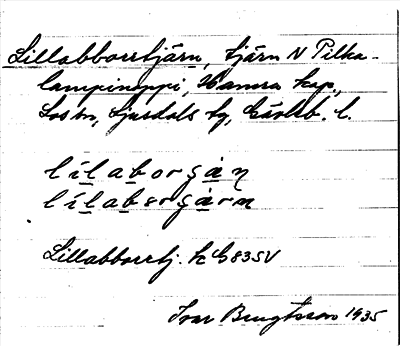 Lillabborrtjärn, tjärn N Pilka-
lampinoppi, Hamra kap.,
Los sn, Ljusdals tg, Gävleb. l.
lilaborgán
lilabərgárn
Lillabborrtj. k G 83SV
Ivar Bengtsson 1935